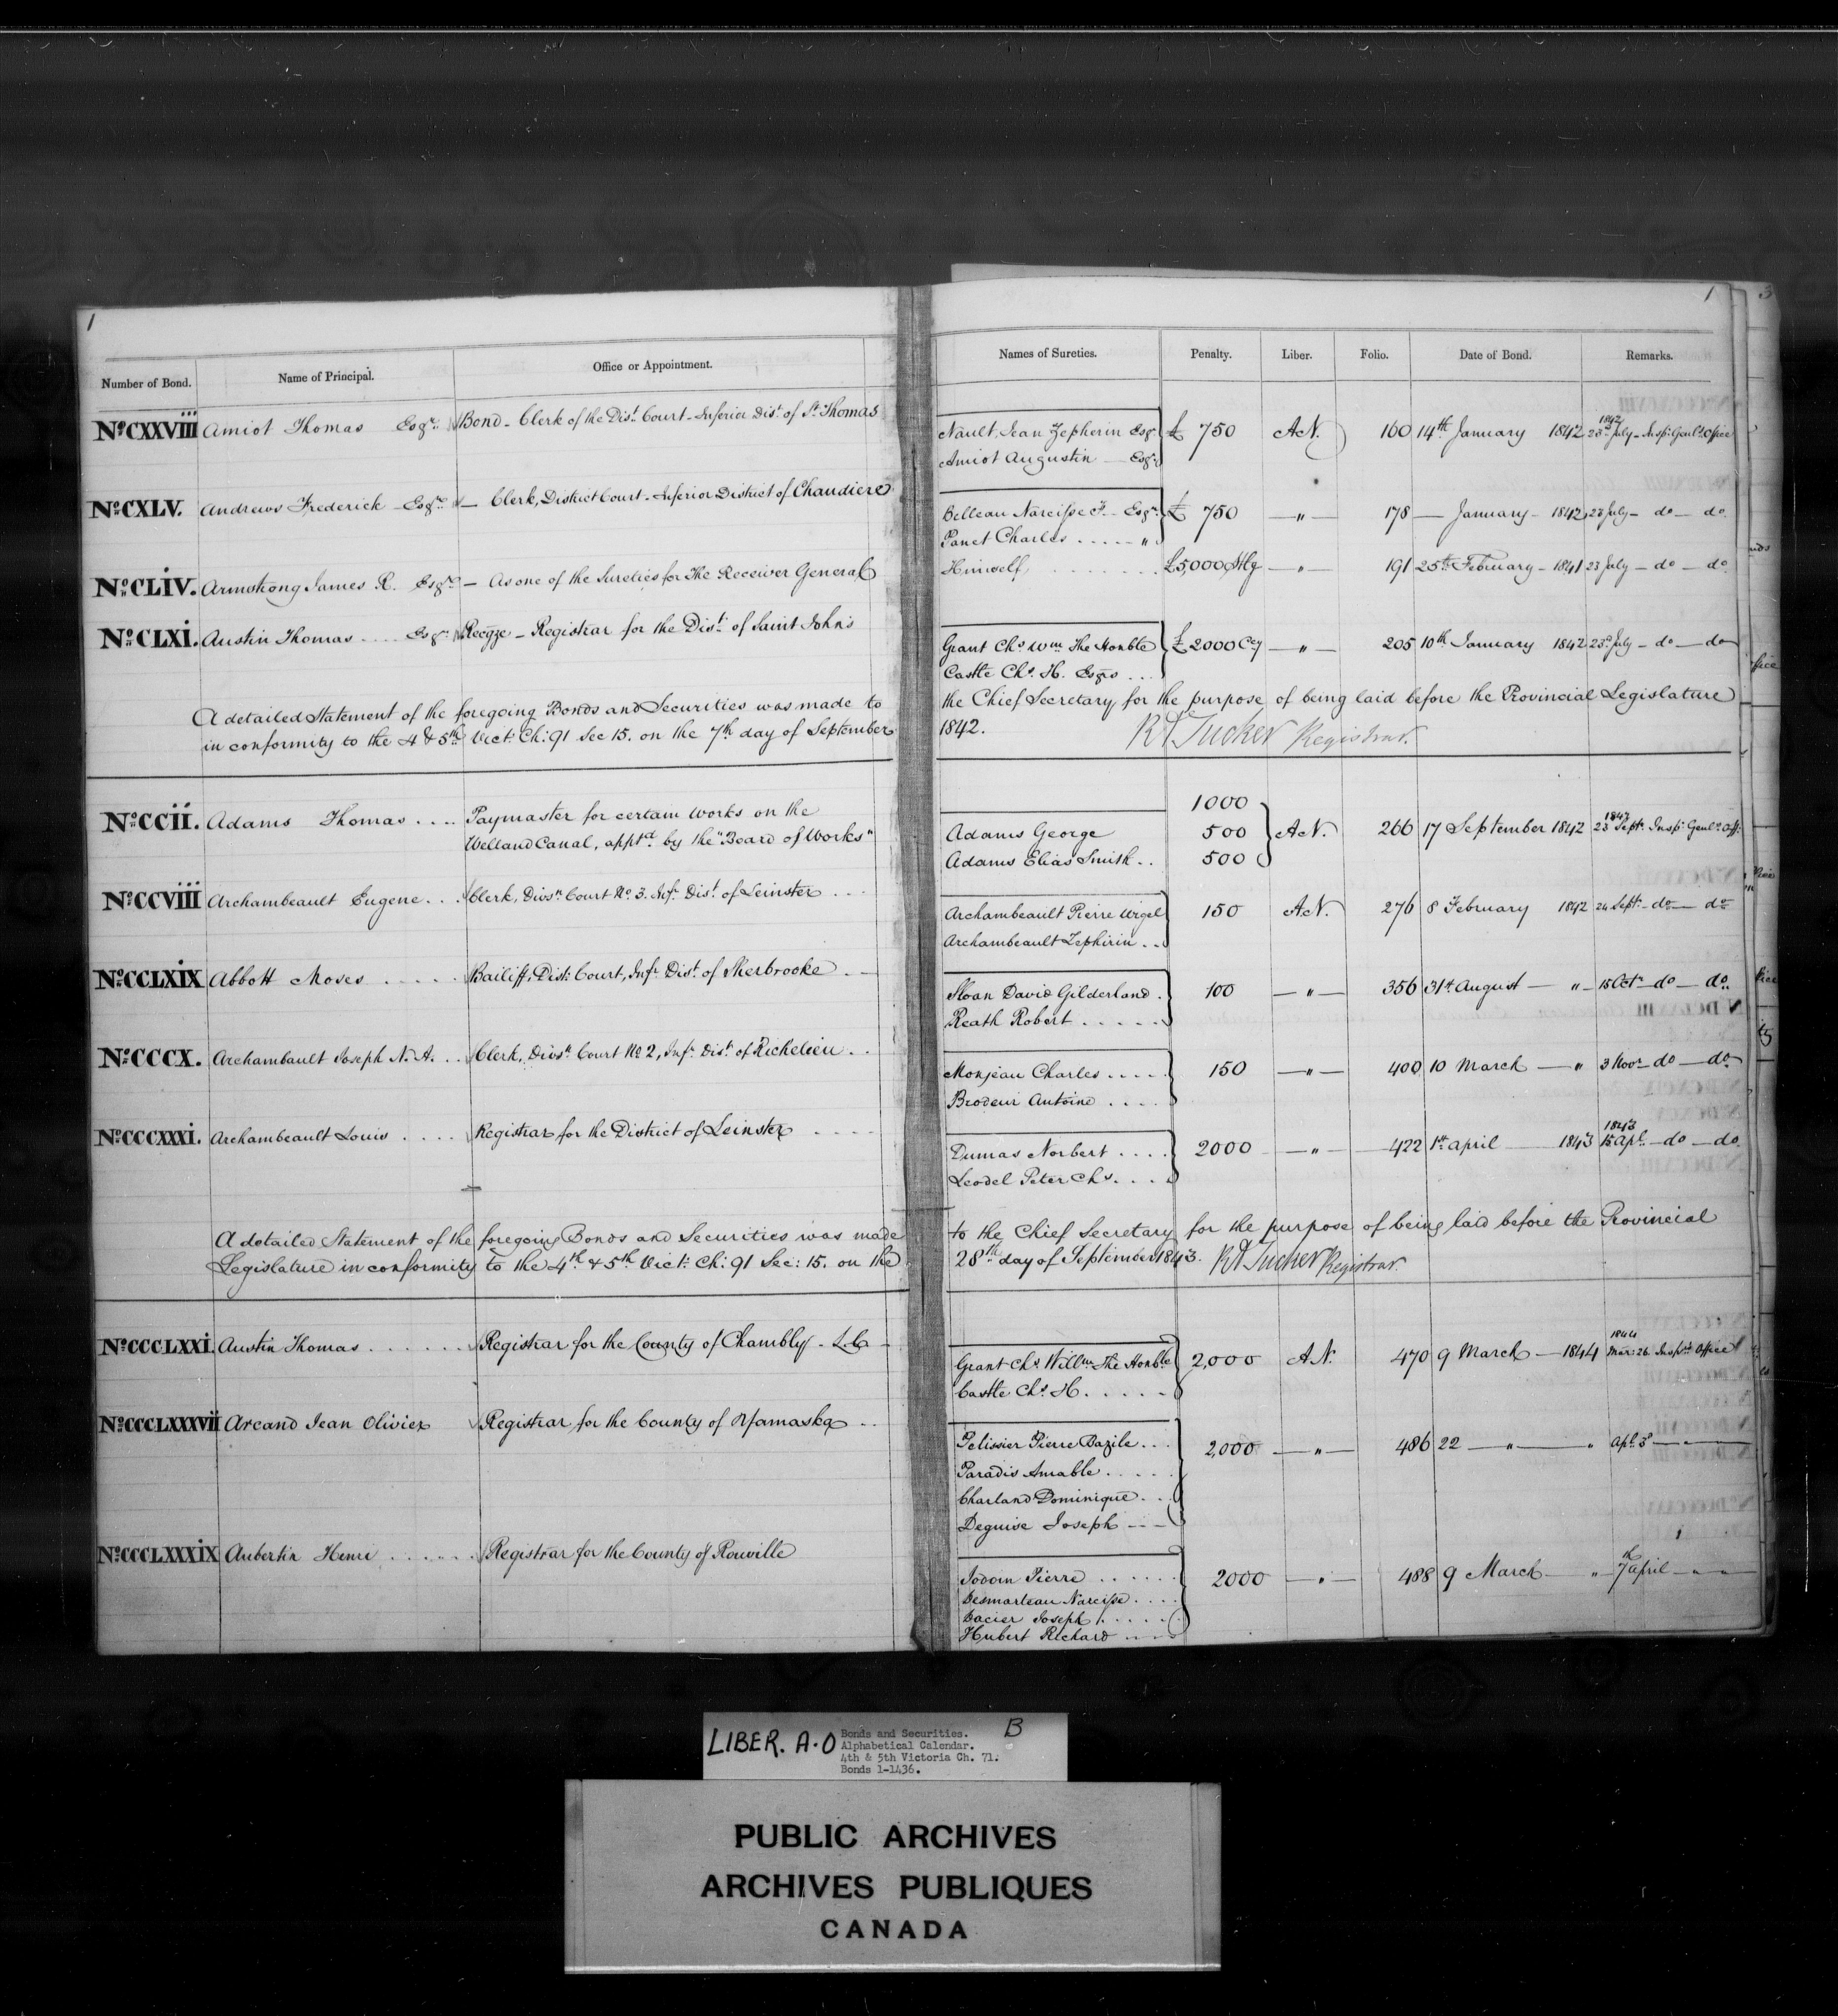 1
Number of Bond. Name of Principal. Office or Appointment.
No. CXXVIII Amiot Thomas Esqr. Bond - Clerk of the Dist. Court - Inferior Dist. of St. Thomas
No. CXLV. Andrews Frederick - Esqre - Clerk, District Court - Inferior District of Chaudiere
No. CLIV. Armstrong James R. Esqre - As one of the Sureties for The Receiver General
No. CLXI. Austin Thomas .... Esqr. Recgze - Registrar for the Dist. of Saint John's
A detailed Statement of the foregoing Bonds and Securities was made to
in conformity to the 4 & 5th Vict: Ch: 91 Sec 15. on the 7th day of September
No. CCII. Adams Thomas .... Paymaster for certain works on the
Welland Canal, apptd by the "Board of Works"
No. CCVIII Archambeault Eugene... Clerk, Divsn Court No. 3. Infr Dist. of Leinster ...
No. CCLXIX Abbott Moses ..... Bailiff, Dist: Court, Infr Dist. of Sherbrooke . -
No. CCCX. Archambault Joseph N. A. .. Clerk, Divsn Court No 2, Infr Dist. of Richelieu . .
No. CCCXXXI. Archambeault Louis .... Registrar for the District of Leinster ....
A detailed Statement of the foregoing Bonds and Securities was made
Legislature in conformity to the 4th & 5th Vict: Ch: 91 Sec: 15. on the
No. CCCLXXI. Austin Thomas ...... Registrar for the County of Chambly - L.C -
No. CCCLXXXVII Arcand Jean Olivier Registrar for the County of Yamaska ..
No. CCCLXXXIX Aubertin Henri ...... Registrar for the County of Rouville
1
3
Names of Sureties. Penalty. Liber. Folio. Date of Bond. Remarks.
1842
Nault, Jean Zepherin Esqr £ 750 AN. 160 14th January 1842 23d July - Insp: Genl's Office
Amiot Augustin - Esqr
Belleau Narcisse F. - Esqr. £ 750 - " - 178 - January - 1842 23 July - do - do.
Panet Charles ..... "
Himself ........ £5,000 Stlg - " - 191 25th February - 1841 23 July - do - do.
Grant Chs Wm The Honble £2000 Cy - " - 205 10th January 1842 23d July - do - do
Castle Chs. H. Esqrs ...
the Chief Secretary for the purpose of being laid before the Provincial Legislature
1842. RA Tucker Registrar.
1000
1842
Adams George 500 AN. 266 17 September 1842 23 Sept: Insp: Genl's Off:
Adams Elias Smith .. 500
Archambeault Pierre Virgel 150 AN. 276 8 February 1842 24 Sept. - do - do
Archambeault Zephirin ..
Sloan David Gilderland . 100 - " - 356 31st August - " - 15 Octr - do - do.
Reath Robert ......
Monjeau Charles .... 150 - " - 400 10 March - " 3 Novr - do - do
Brodeur Antoine ....
1843
Dumas Norbert .... 2000 - " - 422 1st April - 1843 15 Apl. - do - do.
Leodel Peter Chs. ...
to the Chief Secretary for the purpose of being laid before the Provincial
28th day of September 1843. RA Tucker Registrar.
1844
Grant Chs Willm The Honble 2,000 AN. 470 9 March - 1844 Mar: 26 Insprs Office
Castle Chs. H. .....
Pelissier Pierre Bazile ... 2,000 - " - 486 22 - " - " Apl. 3d - " -
Paradis Amable .....
Charland Dominique ...
Deguise Joseph ---
Jodoin Pierre ...... 2000 - " - 488 9 March - " - 7th April - " -
Desmarteau Narcisse ....
Dacier Joseph .....
Hubert Richard ----
LIBER. A.O Bonds and Securities. B
Alphabetical Calendar.
4th & 5th Victoria Ch. 71.
Bonds 1-1436.
PUBLIC ARCHIVES
ARCHIVES PUBLIQUES
CANADA